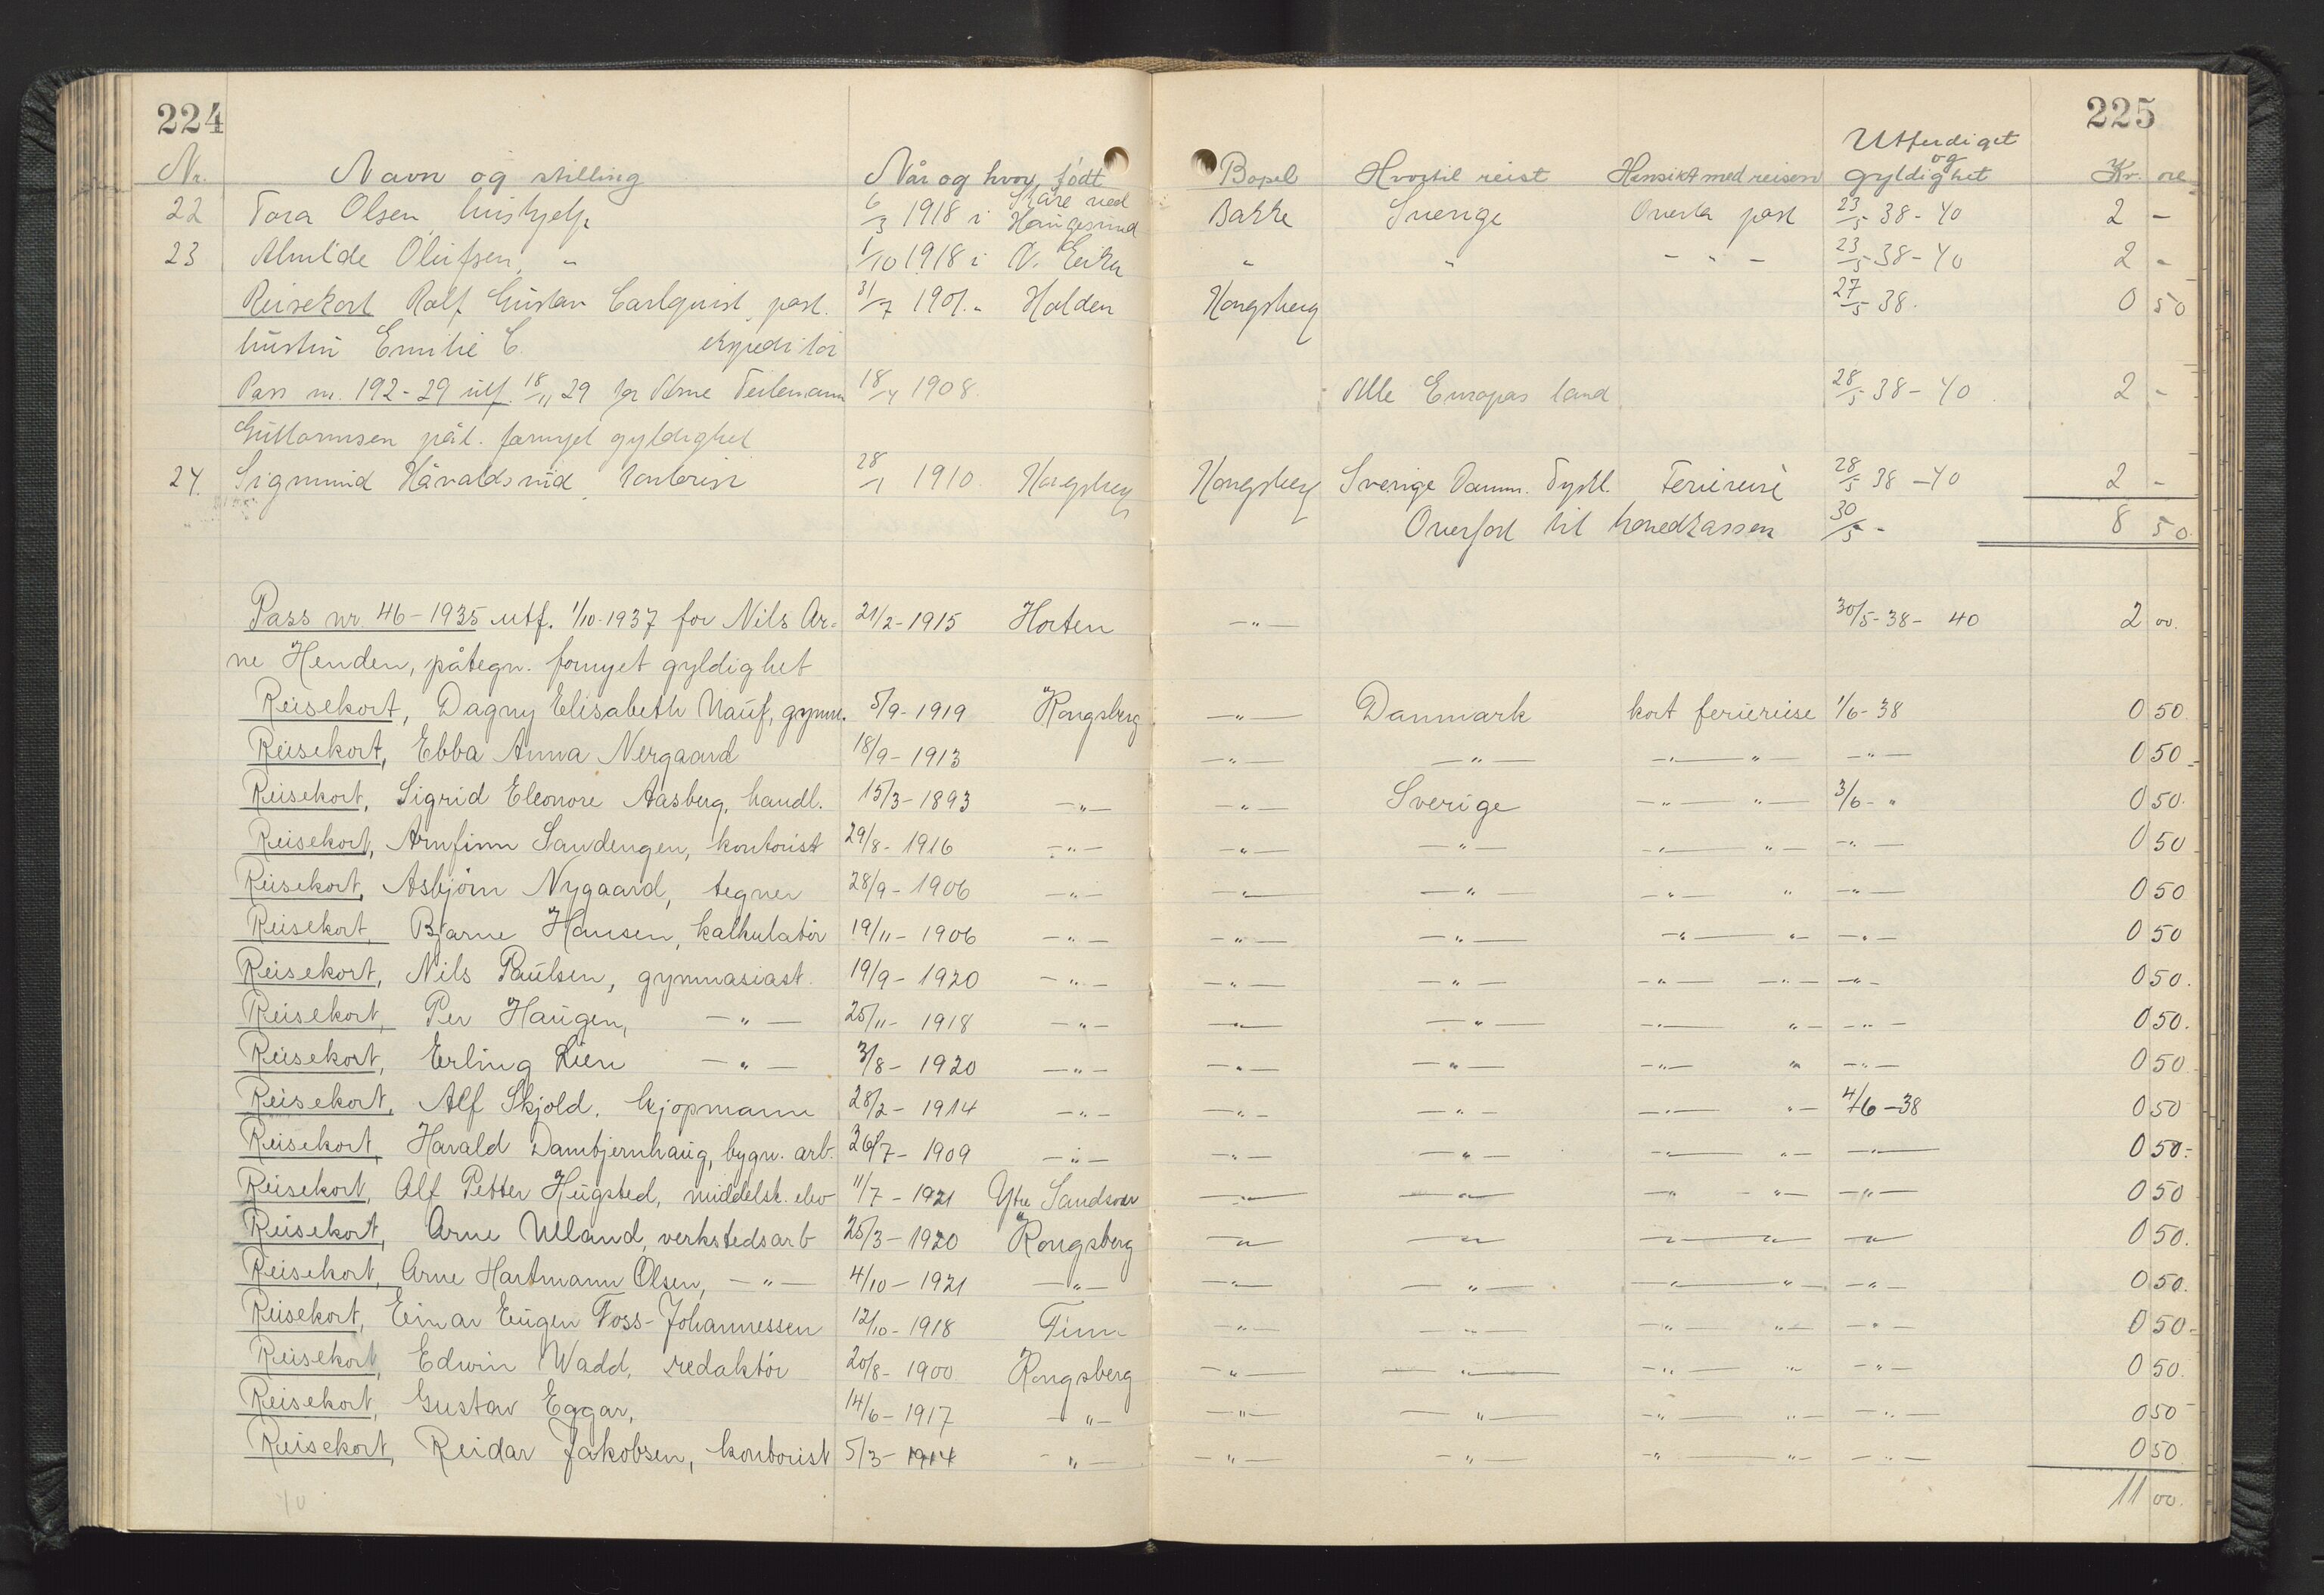 224
225
Nr. Navn og stilling Når og hvor født Bopel Hvortil reist Hensikt med reisen Utferdiget og gyldighet Kr. øre
22 Tora Olsen, hushjelp 6/3 1918 i Skåre ved Haugesund Bakke Sverige Overta post 23/5 38-40 2 -
23 Alvilde Olufsen, " 1/10 1918 i N. Eiker " " - " - 23/5 38-40 2 -
Reisekort Rolf Gustav Carlquist, post. 31/7 1901 " Halden Kongsberg 27/5 38. 0 50
hustru Emilie C. ekspeditør
Pass nr. 192-29 utf. 18/11 29 for Arne Teilemann 18/4 1908. Alle Europas land 28/5 38-40 2 -
Guttormsen påt. fornyet gyldighet
24. Sigmund Håvaldsrud, kontorist 28/1 1910. Kongsberg Kongsberg Sverige Danm. Tyskl. Feriereise 28/5 38-40 2 -
Overført til hovedkassen 30/5 - 8 50.
Pass nr 46-1935 utf. 1/10-1937 for Nils Ar- 21/2-1915 Horten -"- 30/5-38- 40 2 00.
ne Henden, påtegn. fornyet gyldighet
Reisekort, Dagny Elisabeth Nauf, gymn. 5/9-1919 Kongsberg -"- Danmark kort feriereise 1/6-38 0 50.
Reisekort, Ebba Anna Nergaard 18/9-1913 -"- -"- -"- "- -"- 0 50
Reisekort, Sigrid Eleonore Aasberg, handl. 15/3-1893 -"- -"- Sverige -"- "- 3/6- " 0 50.
Reisekort, Arnfinn Sandengen, kontorist 29/8-1916 -"- -"- -"- -"- "- -"- 0 50
Reisekort, Asbjørn Nygaard, tegner 28/9-1906 -"- -"- -"- -"- " -"- 0 50
Reisekort, Bjarne Hansen, kalkulatør 19/11-1906 -"- -"- -"- -"- "- -"- 0 50
Reisekort, Nils Paulsen, gymnasiast. 19/9-1920 -"- -"- -"- -"- -"- -"- 0 50.
Reisekort, Per Haugen, -"- 25/11-1918 -"- -"- -"- -"- "- -"- 0 50.
Reisekort, Erling Lien -"- 3/8-1920 -"- -"- -"- -"- " -"- 0 50
Reisekort, Alf Skjold, kjøpmann 28/2-1914 -"- -"- -"- -"- "- 4/6-38 0 50
Reisekort, Harald Dambjernhaug, bygn. arb. 26/7-1909 -"- -"- -"- -"- "- -"- 0 50.-
Reisekort, Alf Petter Hugsted, middelsk. elev 11/7-1921 Ytre Sandsvær -"- -"- -"- "- -"- 0 50
Reisekort, Arne Ulland, verkstedsarb 25/3-1920 Kongsberg -"- -"- -"- "- -"- 0 50.
Reisekort, Arne Hartmann Olsen, -"- 4/10-1921 -"- -"- -"- -"- "- -"- 0 50.
Reisekort, Einar Eugen Foss-Johannessen 12/10-1918 Tinn -"- -"- -"- "- -"- 0 50-
Reisekort, Edwin Wadd, redaktør 20/8-1900 Kongsberg -"- -"- -"- "- -"- 0 50.
Reisekort, Gustav Eggar, 14/6-1917 -"- -"- -"- -"- "- -"- 0 50
Reisekort, Reidar Jakobsen, kontorist 5/3-1914 -"- -"- -"- -"- "- -"- 0 50.
11 00.